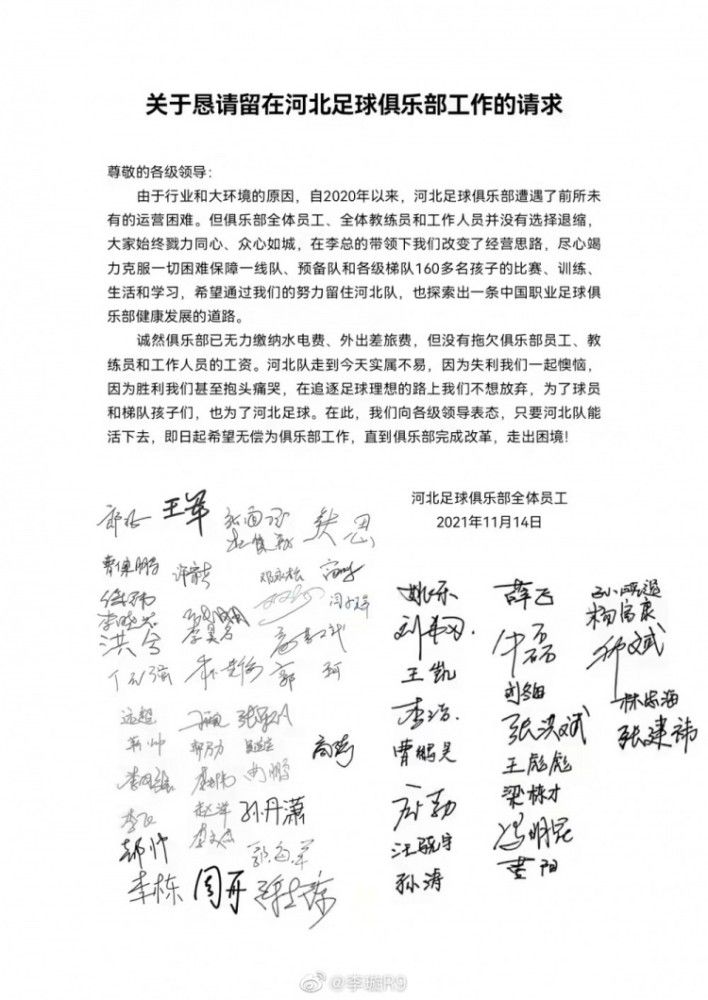 关于恳请留在河北足球俱乐部工作的请求
尊敬的各级领导：
由于行业和大环境的原因，自2020年以来，河北足球俱乐部遭遇了前所未
有的运营困难。但俱乐部全体员工、全体教练员和工作人员并没有选择退缩，
大家始终戮力同心、众心如城，在李总的带领下我们改变了经营思路，尽心竭
力克服一切困难保障一线队、预备队和各级梯队160多名孩子的比赛、训练、
生活和学习，希望通过我们的努力留住河北队，也探索出一条中国职业足球俱
乐部健康发展的道路。
诚然俱乐部已无力缴纳水电费、外出差旅费，但没有拖欠俱乐部员工、教
练员和工作人员的工资。河北队走到今天实属不易，因为失利我们一起懊恼，
因为胜利我们甚至抱头痛哭，在追逐足球理想的路上我们不想放弃，为了球员
和梯队孩子们，也为了河北足球。在此，我们向各级领导表态，只要河北队能
活下去，即日起希望无偿为俱乐部工作，直到俱乐部完成改革，走出困境！
河北足球俱乐部全体员工
2021年11月14日
王军
曹保鹏
李晓芯
洪兮
郭珂
远超
高奇
孙丹潇
郝帅
李栋 周开
姚乐 薛飞
杨富康
王凯
刘翱
林宏海
李浩
张洪斌 张建祎
曹鹏昊
王彪彪
梁栋才
汪骁宇 冯明昆
孙涛 黄阳
@李璇R9